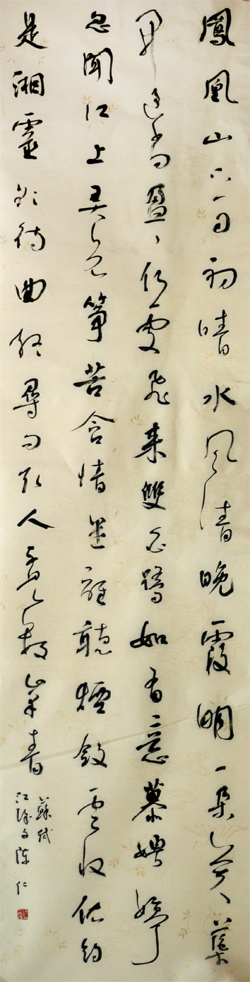 鳳凰山下雨初晴水風清晚霞明一朵芙蕖
開過尚盈〻何處飛來雙白鷺如有意慕娉婷
忽聞江上弄哀箏苦含情遣誰聽煙斂雲收依約
是湘靈欲待曲終尋問取人不見數峯青
蘇軾
江城子陳仁